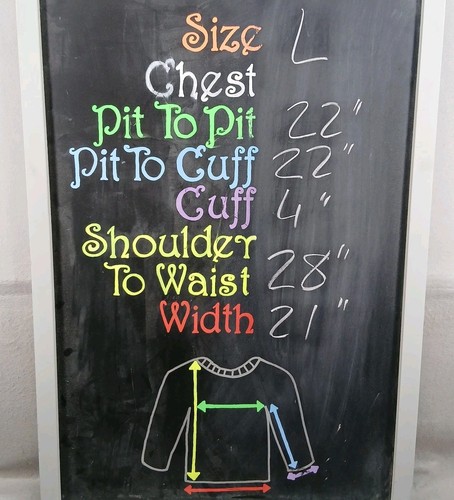 Size L
Chest
Pit To Pit 22"
Pit To Cuff 22"
Cuff 4"
Shoulder
To Waist 28"
Width 21"